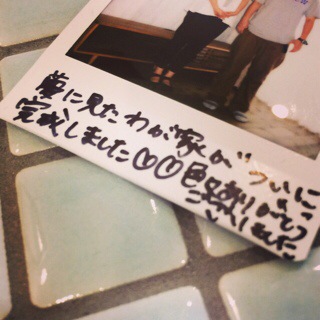 夢に見たわが家がついに
完成しました♡♡色々ありがとう
ございました